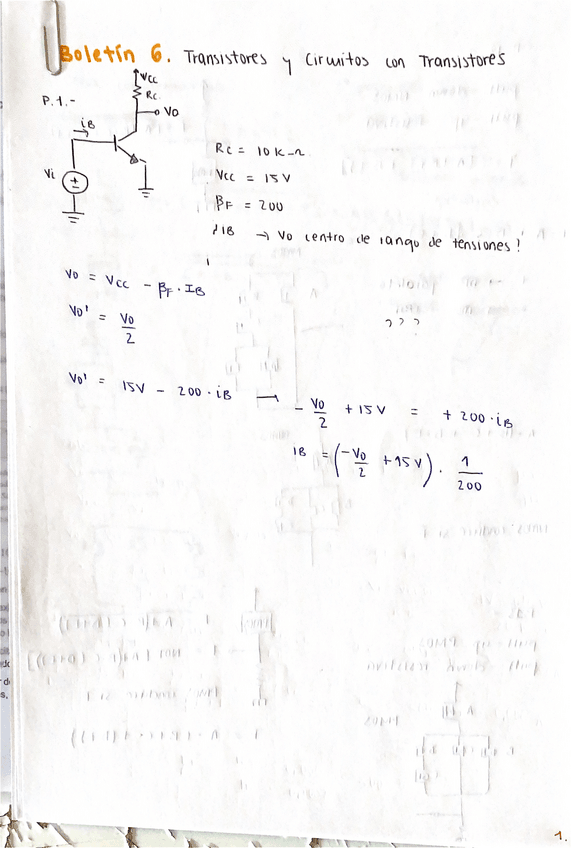 Boletín 6. Transistores y Circuitos con Transistores
P.1.-
Vcc
Rc
Vo
iB
Vi
Rc = 10 kΩ
Vcc = 15 V
βF = 200
¿IB → Vo centro de rango de tensiones?
Vo = Vcc - βF · IB
Vo' = Vo/2
? ? ?
Vo' = 15V - 200 · iB → - Vo/2 + 15V = + 200 · iB
IB = (-Vo/2 + 15V) · 1/200
1.